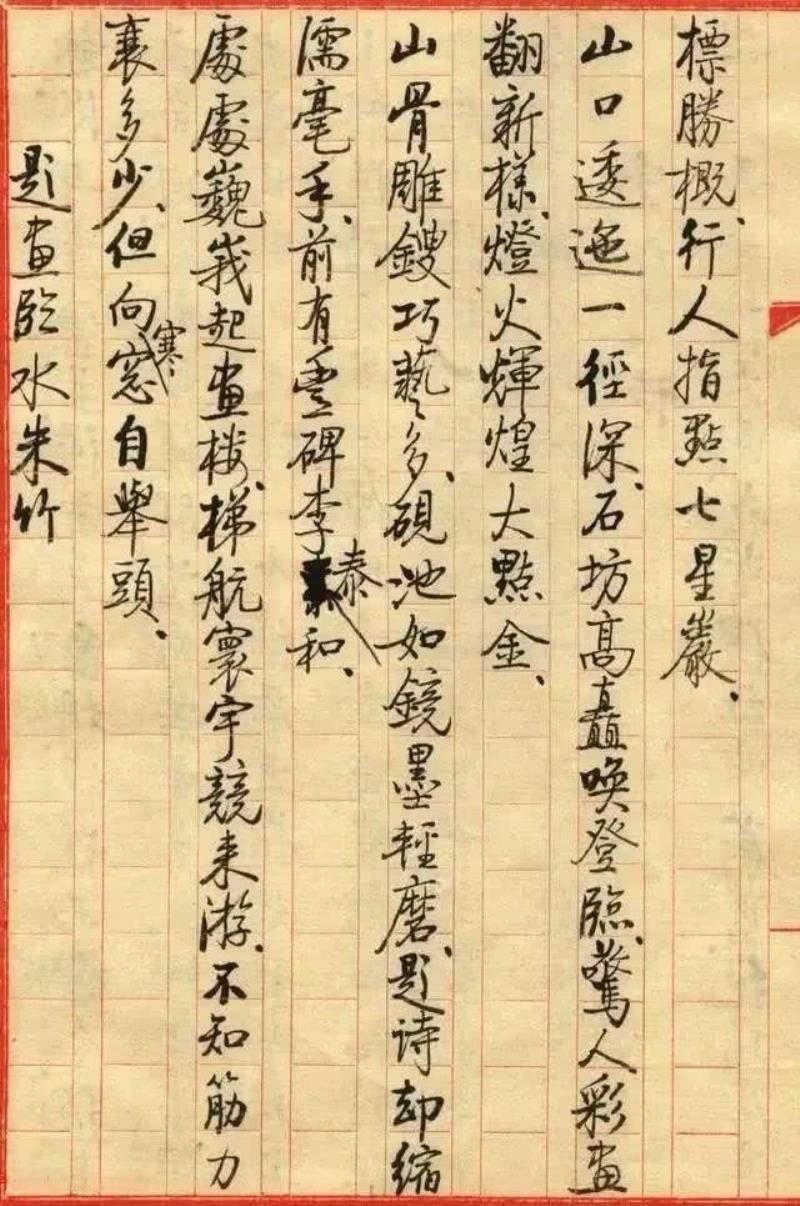 標勝概、行人指點七星巖、
山口逶迤一徑深、石坊高矗喚登臨、驚人彩畫
翻新樣、燈火輝煌大點金、
山骨雕鎪巧藝多、硯池如鏡墨輕磨、題诗却缩
濡毫手、前有雲碑李泰和、
處處巍峩起畫楼、梯航寰宇競来游、不知筋力
衰多少、但向寒窓自舉頭、
題畫臨水朱竹